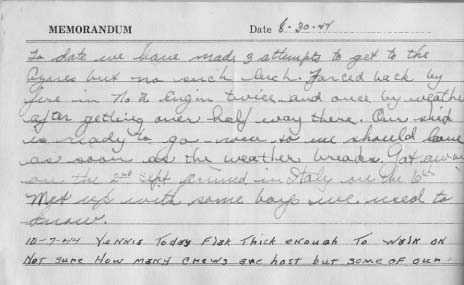 MEMORANDUM Date 8-30-44
To date we have made 3 attempts to get to the
Azores but no such luck. Forced back by
fire in No 2 Engin twice and once by weather
after getting over half way there. Our ship
is ready to go now so we should leave
as soon as the weather breaks. Got away
on the 2nd Sept arrived in Italy on the 10th
Met up with some boys we used to
know.
10-7-44 Vennia Today Flak Thick enough To Walk on
Not sure How many crews are lost but some of our